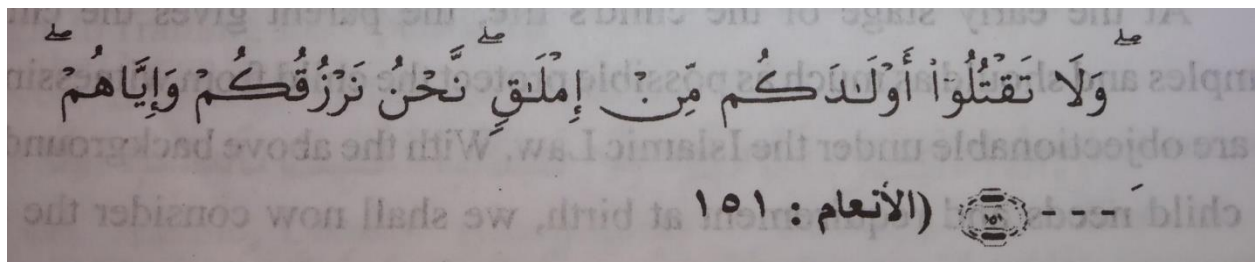 ۖ وَلَا تَقْتُلُوٓا۟ أَوْلَـٰدَكُم مِّنْ إِمْلَـٰقٍ ۖ نَّحْنُ نَرْزُقُكُمْ وَإِيَّاهُمْ ۖ
--- ١٥١ (الأنعام : ١٥١